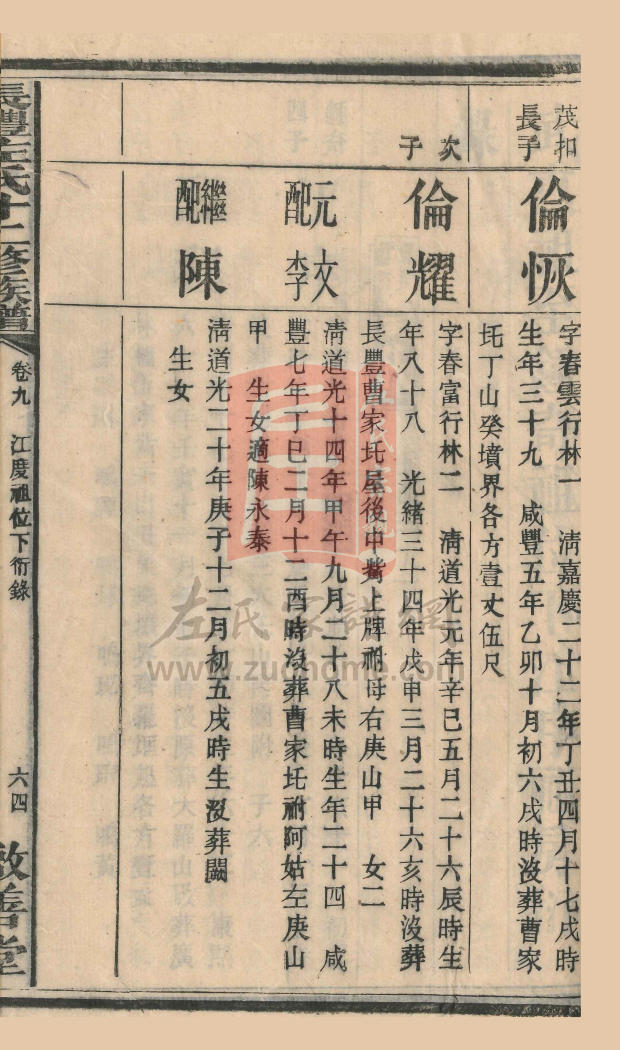 茂扣
長子
倫恢
字春雲行林一　清嘉慶二十二年丁丑四月十七戌時
生年三十九　咸豐五年乙卯十月初六戌時沒葬曹家
圫丁山癸墳界各方壹丈伍尺
次
子
倫耀
字春富行林二　清道光元年辛巳五月二十六辰時生
年八十八　光緒三十四年戊申三月二十六亥時沒葬
長豐曹家圫屋後中嘴上牌祔母右庚山甲　女二
元
配
文
李
清道光十四年甲午九月二十八未時生年二十四　咸
豐七年丁巳二月十二酉時沒葬曹家圫祔阿姑左庚山
甲　生女適陳永泰
繼
配
陳
清道光二十年庚子十二月初五戌時生沒葬闕
生女
長豐左氏十二修族譜
卷九　江度祖位下衍錄
六四
敦善堂
左氏家譜網
www.zuohome.com